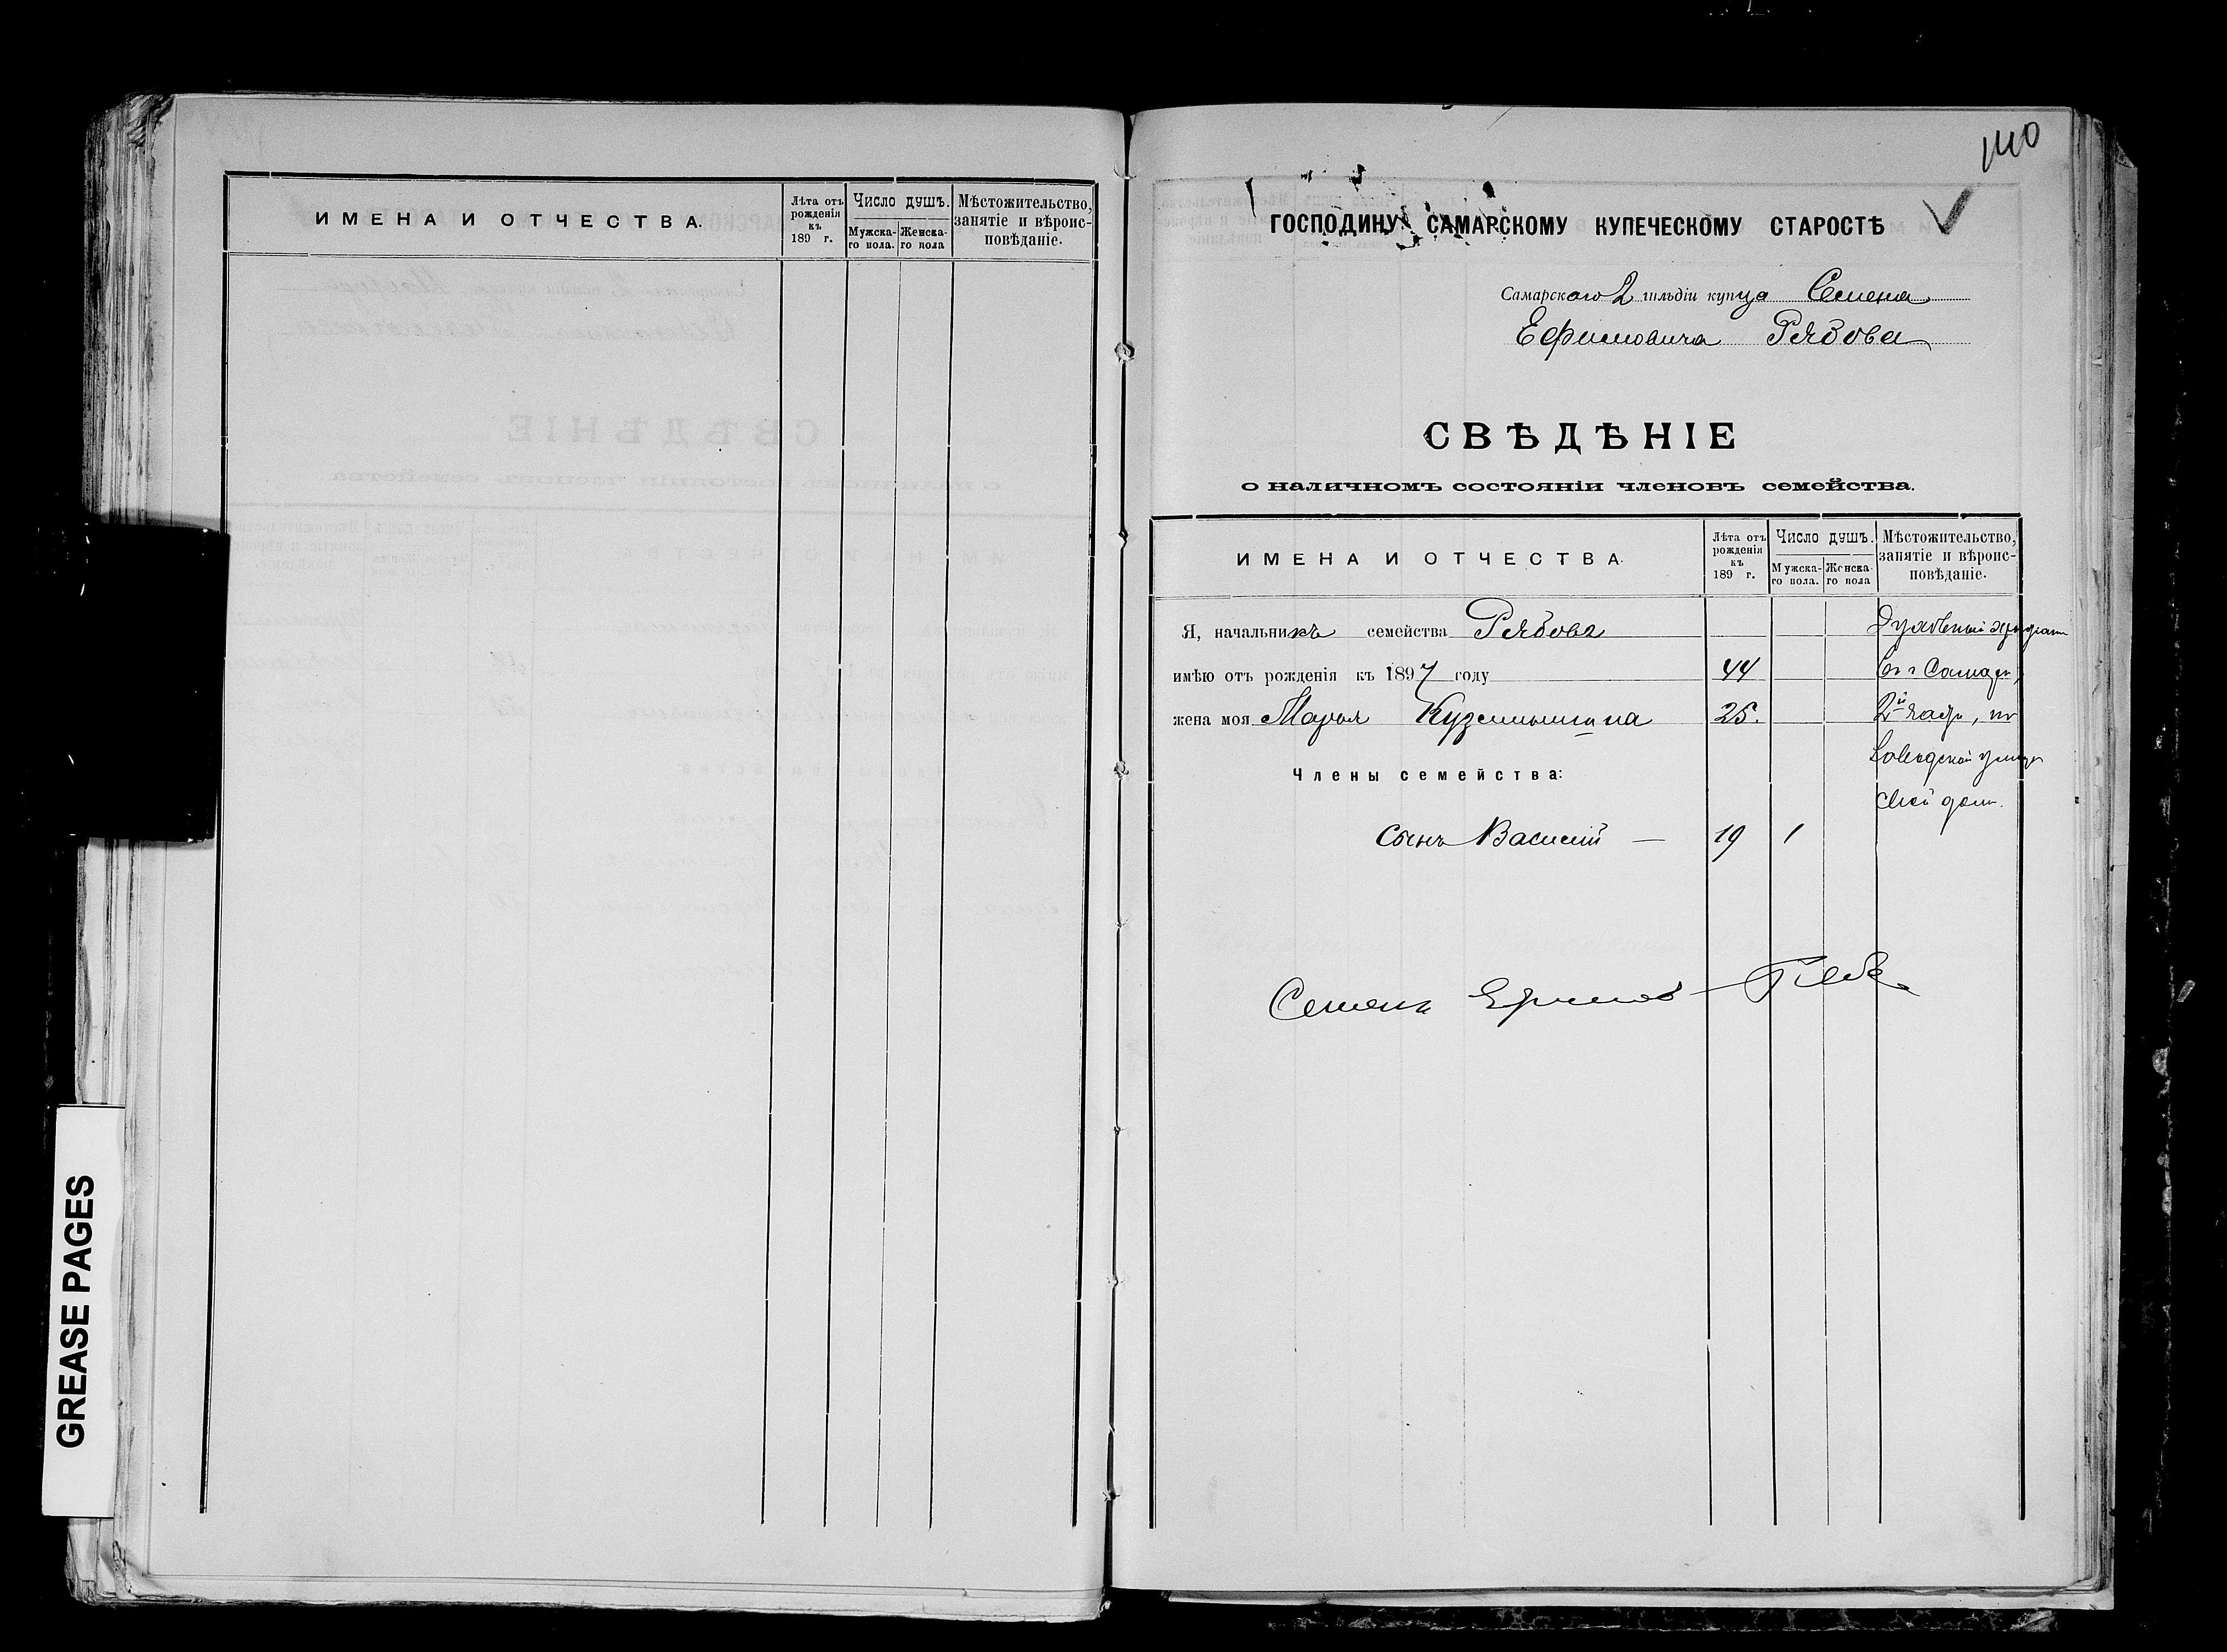 ИМЕНА И ОТЧЕСТВА.
Лѣта отъ рожденія къ 189 г.
Число душъ.
Мужска-го пола.
Женска-го пола
Мѣстожительство, занятіе и вѣроис-повѣданіе.
140
ГОСПОДИНУ САМАРСКОМУ КУПЕЧЕСКОМУ СТАРОСТѢ
Самарского 2 гильдіи купца Семена
Ефимовича Рябова
СВѢДѢНІЕ
о наличномъ состояніи членовъ семейства.
ИМЕНА И ОТЧЕСТВА.
Лѣта отъ рожденія къ 189 г.
Число душъ.
Мужска-го пола.
Женска-го пола
Мѣстожительство, занятіе и вѣроис-повѣданіе.
Я, начальникъ семейства Рябовъ
имѣю отъ рожденія къ 1897 году 44 въ г Самарѣ,
жена моя Марья Кузьминишна 25. 2й части, по
улицѣ
Члены семейства:
свой домъ.
сынъ Василий — 19 1
Семенъ Ефимовъ Рябовъ
GREASE PAGES